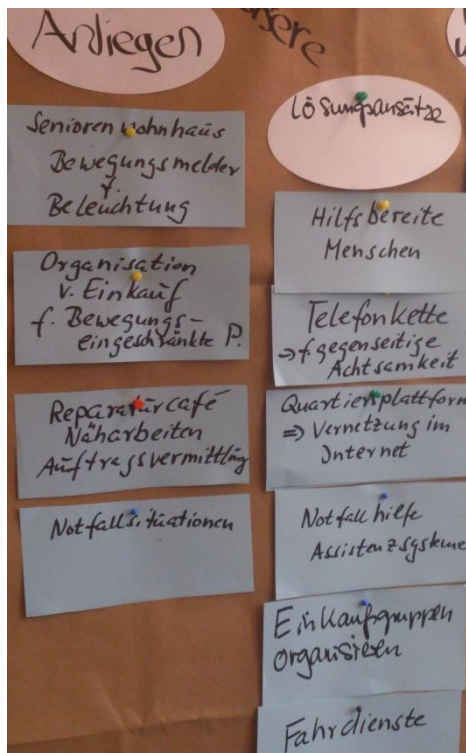 Anliegen
Seniorenwohnhaus
Bewegungsmelder
f.
Beleuchtung
Organisation
v. Einkauf
f. Bewegungs-
eingeschränkte P.
Reparaturcafé
Näharbeiten
Auftragsvermittlung
Notfallsituationen
Lösungsansätze
Hilfsbereite
Menschen
Telefonkette
→ f gegenseitige
Achtsamkeit
Quartiersplattform
⇒ Vernetzung im
Internet
Notfallhilfe
Assistenzsysteme
Einkaufsgruppen
organisieren
Fahrdienste